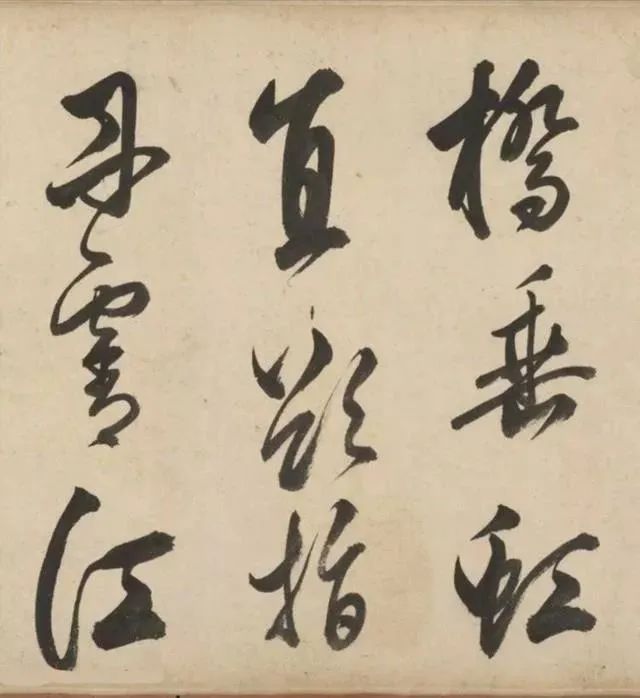 橋垂虹
直欲指
丹霄江